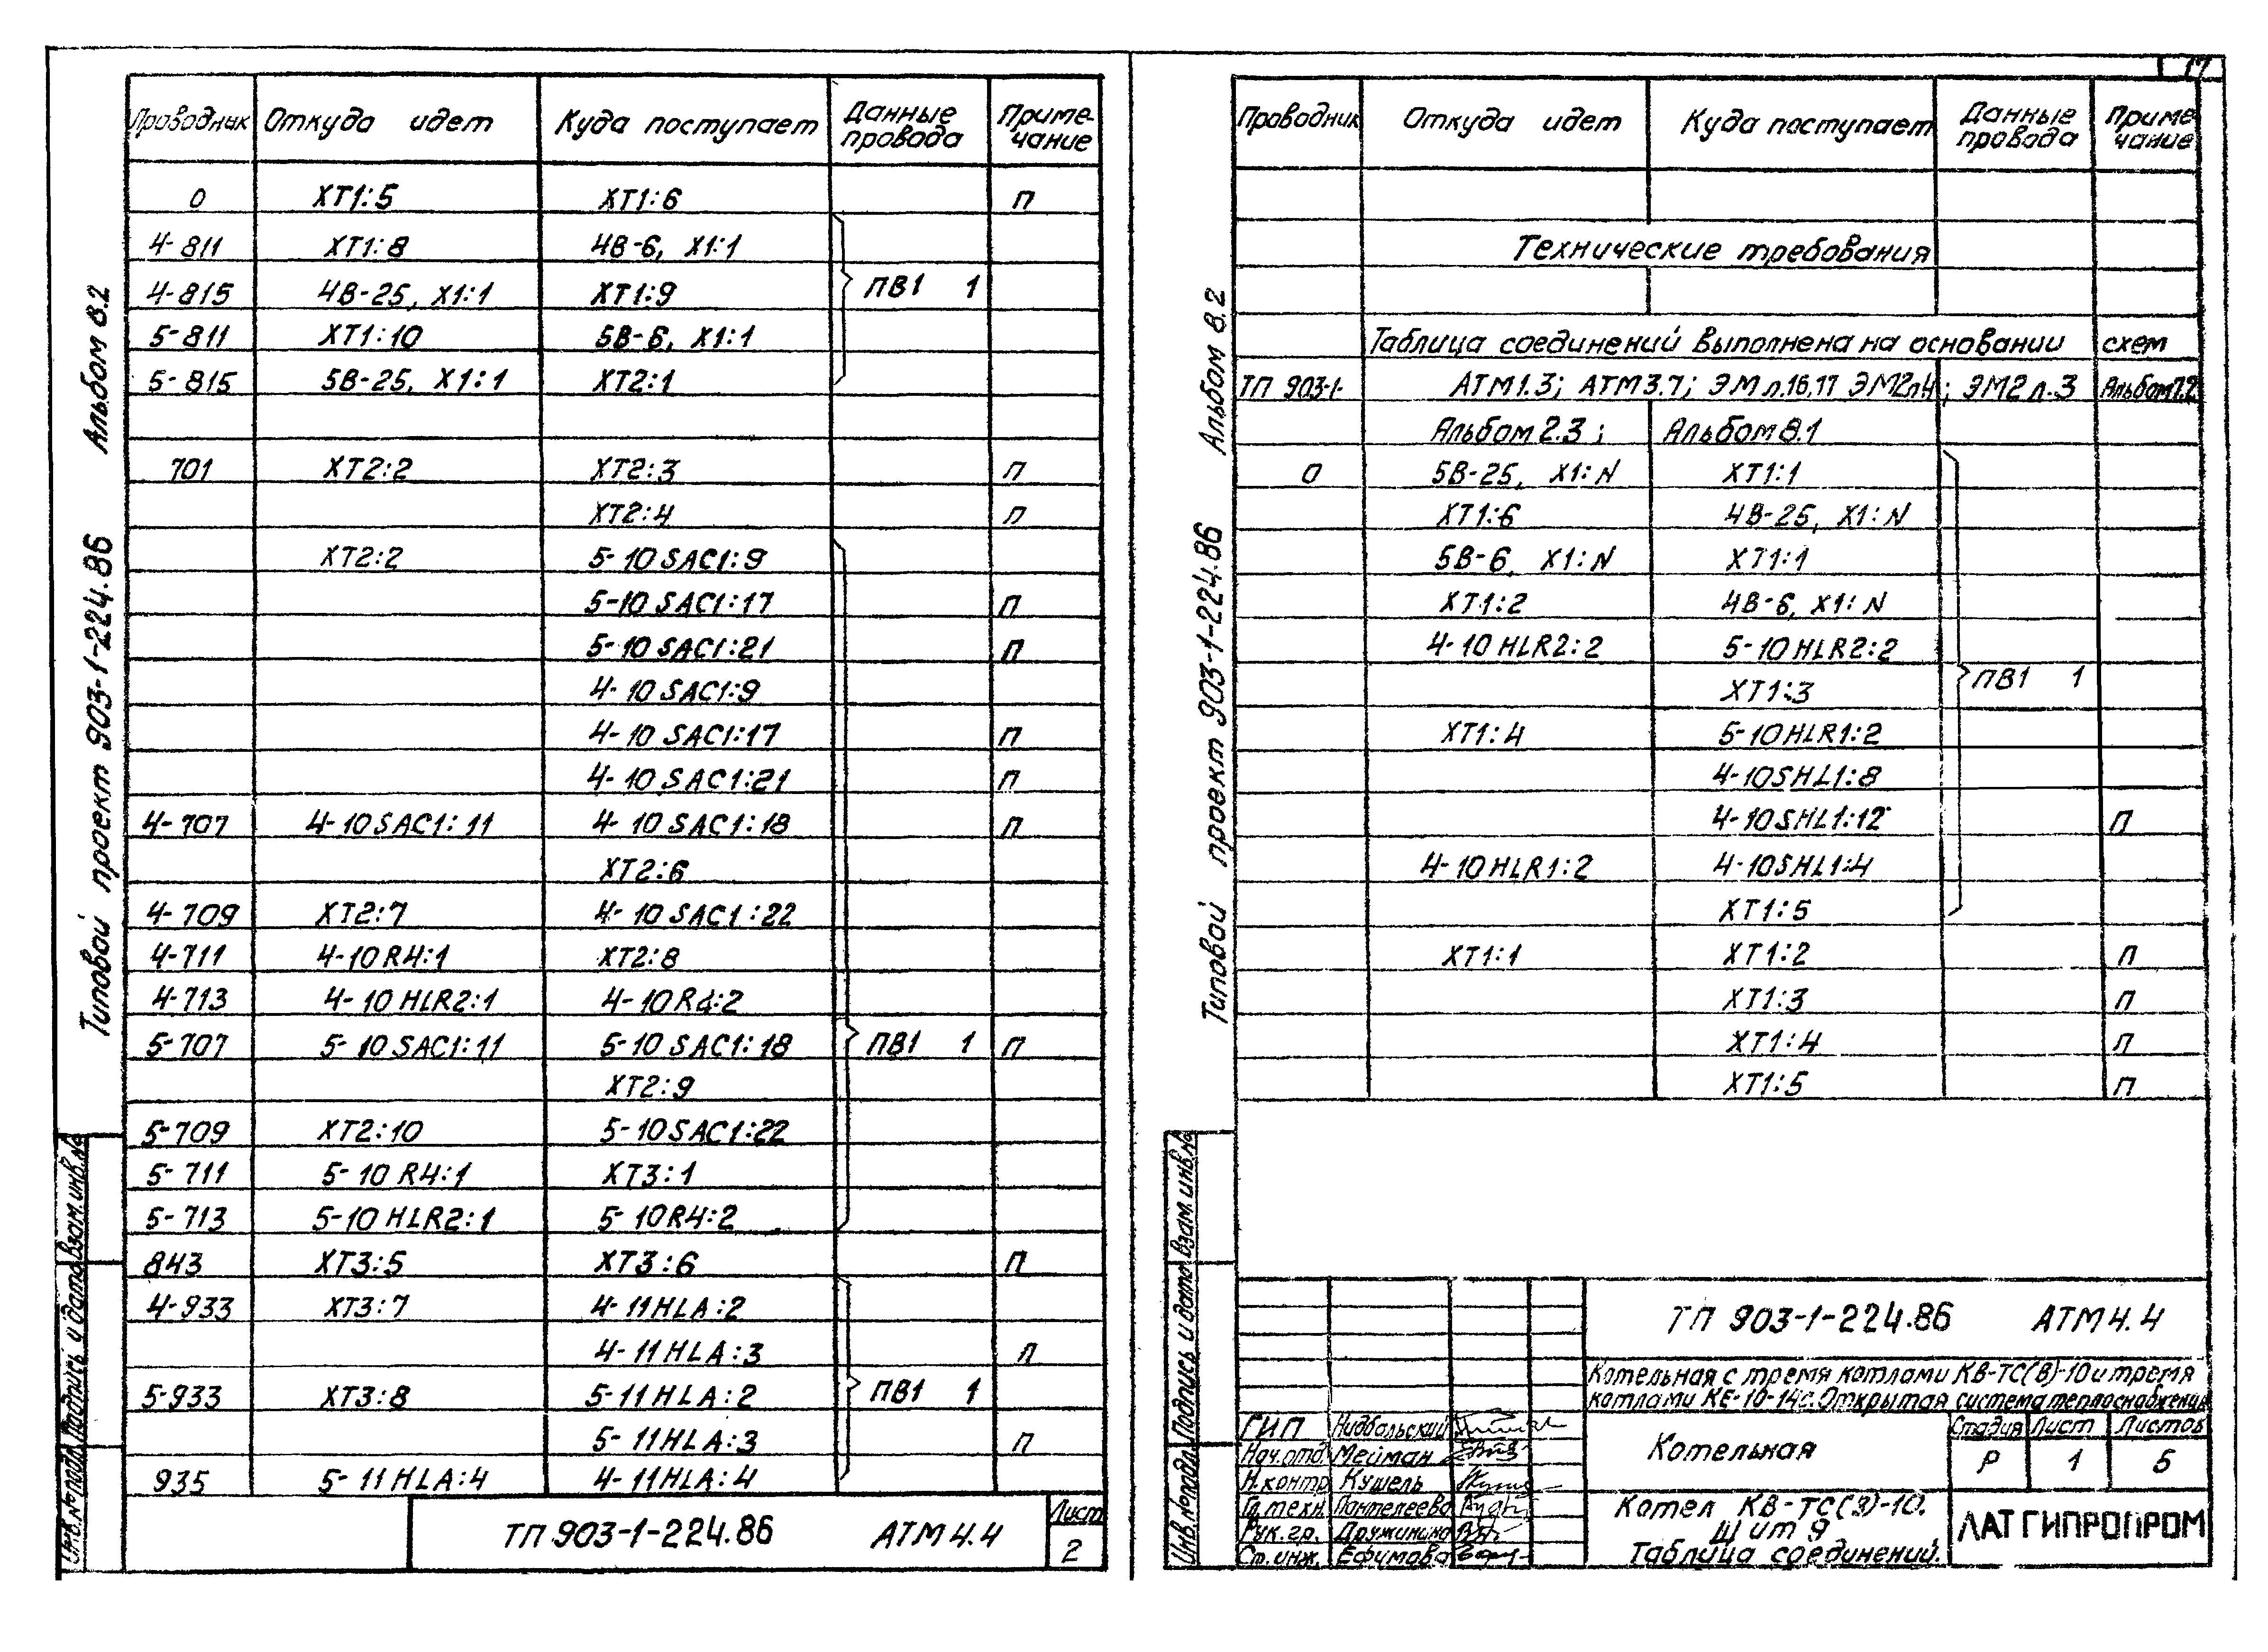 17
Альбом 8.2
Типовой проект 903-1-224.86
Проводник Откуда идет Куда поступает Данные провода Примечание
0 XT1:5 XT1:6 П
4-811 XT1:8 4В-6, X1:1
4-815 4В-25, X1:1 XT1:9 ПВ1 1
5-811 XT1:10 5В-6, X1:1
5-815 5В-25, X1:1 XT2:1
701 XT2:2 XT2:3 П
XT2:4 П
XT2:2 5-10SAC1:9
5-10SAC1:17 П
5-10SAC1:21 П
4-10SAC1:9
4-10SAC1:17 П
4-10SAC1:21 П
4-707 4-10SAC1:11 4-10SAC1:18 П
XT2:6
4-709 XT2:7 4-10SAC1:22
4-711 4-10R4:1 XT2:8
4-713 4-10HLR2:1 4-10R4:2
5-707 5-10SAC1:11 5-10SAC1:18 ПВ1 1 П
XT2:9
5-709 XT2:10 5-10SAC1:22
5-711 5-10R4:1 XT3:1
5-713 5-10HLR2:1 5-10R4:2
843 XT3:5 XT3:6 П
4-933 XT3:7 4-11HLA:2
4-11HLA:3 П
5-933 XT3:8 5-11HLA:2 ПВ1 1
5-11HLA:3 П
935 5-11HLA:4 4-11HLA:4
Инв.№подл. Подпись и дата Взам.инв.№
ТП 903-1-224.86 АТМ4.4 Лист 2
Альбом 8.2
Типовой проект 903-1-224.86
Проводник Откуда идет Куда поступает Данные провода Примечание
Технические требования
Таблица соединений выполнена на основании схем
ТП 903-1- АТМ1.3; АТМ3.7; ЭМ л.16,17 ЭМ2л4; ЭМ2 л.3 Альбом7.2
Альбом 2.3; Альбом 8.1
0 5В-25, X1:N XT1:1
XT1:6 4В-25, X1:N
5В-6, X1:N XT1:1
XT1:2 4В-6, X1:N
4-10HLR2:2 5-10HLR2:2
XT1:3 ПВ1 1
XT1:4 5-10HLR1:2
4-10SHL1:8
4-10SHL1:12 П
4-10HLR1:2 4-10SHL1:4
XT1:5
XT1:1 XT1:2 П
XT1:3 П
XT1:4 П
XT1:5 П
Инв.№подл. Подпись и дата Взам.инв.№
ТП 903-1-224.86 АТМ4.4
Котельная с тремя котлами КВ-ТС(В)-10 и тремя
котлами КЕ-10-14с. Открытая система теплоснабжения
ГИП Нидбальский
Нач.отд. Мейман
Н.контр Кушель
Гл.техн. Пантелеева
Рук.гр. Дружинина
Ст.инж. Ефимова
Котельная
Стадия Лист Листов
Р 1 5
Котел КВ-ТС(3)-10.
Щит 9
Таблица соединений.
ЛАТГИПРОПРОМ